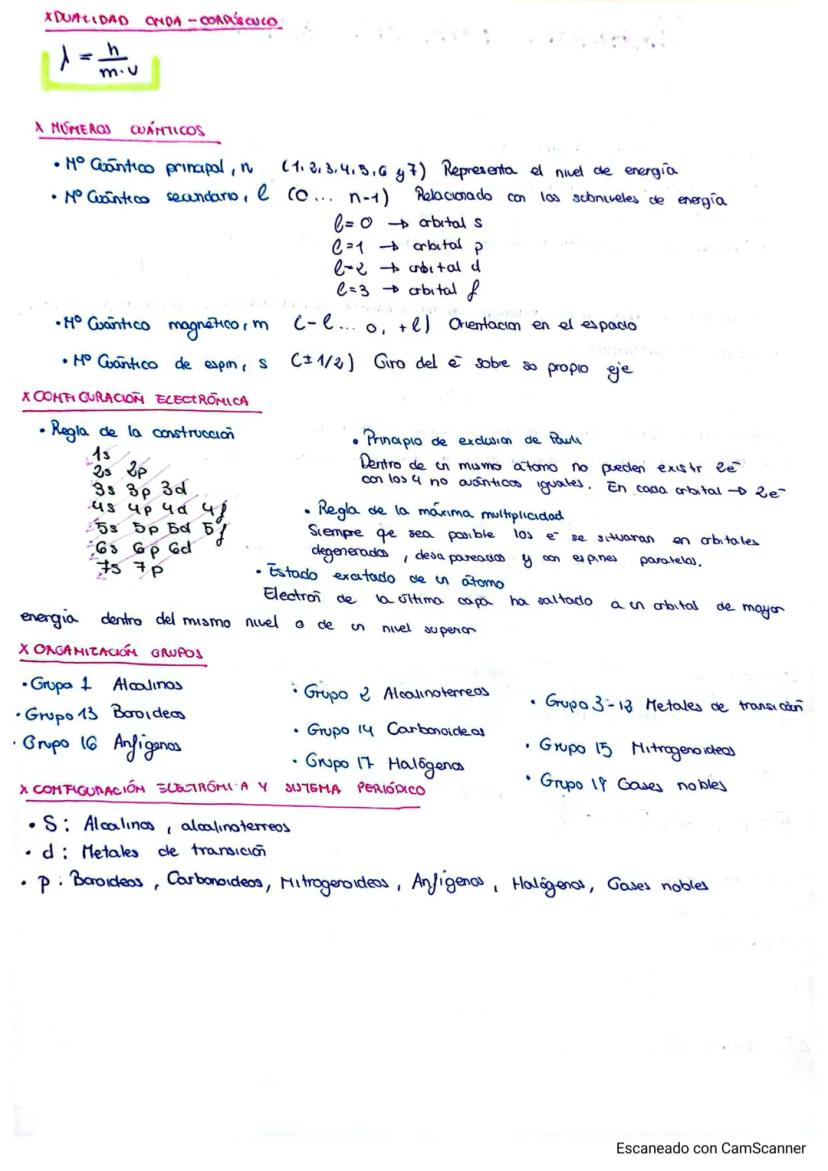 X DUALIDAD ONDA-CORPÚSCULO
λ = h / m·v
X NÚMEROS CUÁNTICOS
• Nº Cuántico principal, n (1,2,3,4,5,6 y 7) Representa el nivel de energía
• Nº Cuántico secundario, l (0... n-1) Relacionado con los subniveles de energía
l=0 → orbital s
l=1 → orbital p
l=2 → orbital d
l=3 → orbital f
• Nº Cuántico magnético, m (-l... 0, +l) Orientacion en el espacio
• Nº Cuántico de espin, s (±1/2) Giro del e⁻ sobre so propio eje
X CONFIGURACIÓN ELECTRÓNICA
• Regla de la construcción
1s
2s 2p
3s 3p 3d
4s 4p 4d 4f
5s 5p 5d 5f
6s 6p 6d
7s 7p
• Principio de exclusion de Pauli
Dentro de un mismo átomo no pueden existir 2e⁻
con los 4 no cuánticos iguales. En cada orbital → 2e⁻
• Regla de la máxima multiplicidad
Siempre qe sea posible los e⁻ se situaran en orbitales
degenerados, desapareados y con espines paralelos.
• Estado excitado de un átomo
Electrón de la última capa ha saltado a un orbital de mayor
energía dentro del mismo nivel o de un nivel superior
X ORGANIZACIÓN GRUPOS
• Grupo 1 Alcalinos
• Grupo 2 Alcalinoterreos
• Grupo 3-12 Metales de transición
• Grupo 13 Boroideos
• Grupo 14 Carbonoideos
• Grupo 15 Nitrogenoideos
• Grupo 16 Anfígenos
• Grupo 17 Halógenos
• Grupo 18 Gases nobles
X CONFIGURACIÓN ELECTRÓNICA Y SISTEMA PERIÓDICO
• S: Alcalinos, alcalinoterreos
• d: Metales de transición
• p: Boroideos, Carbonoideos, Nitrogenoideos, Anfígenos, Halógenos, Gases nobles
Escaneado con CamScanner